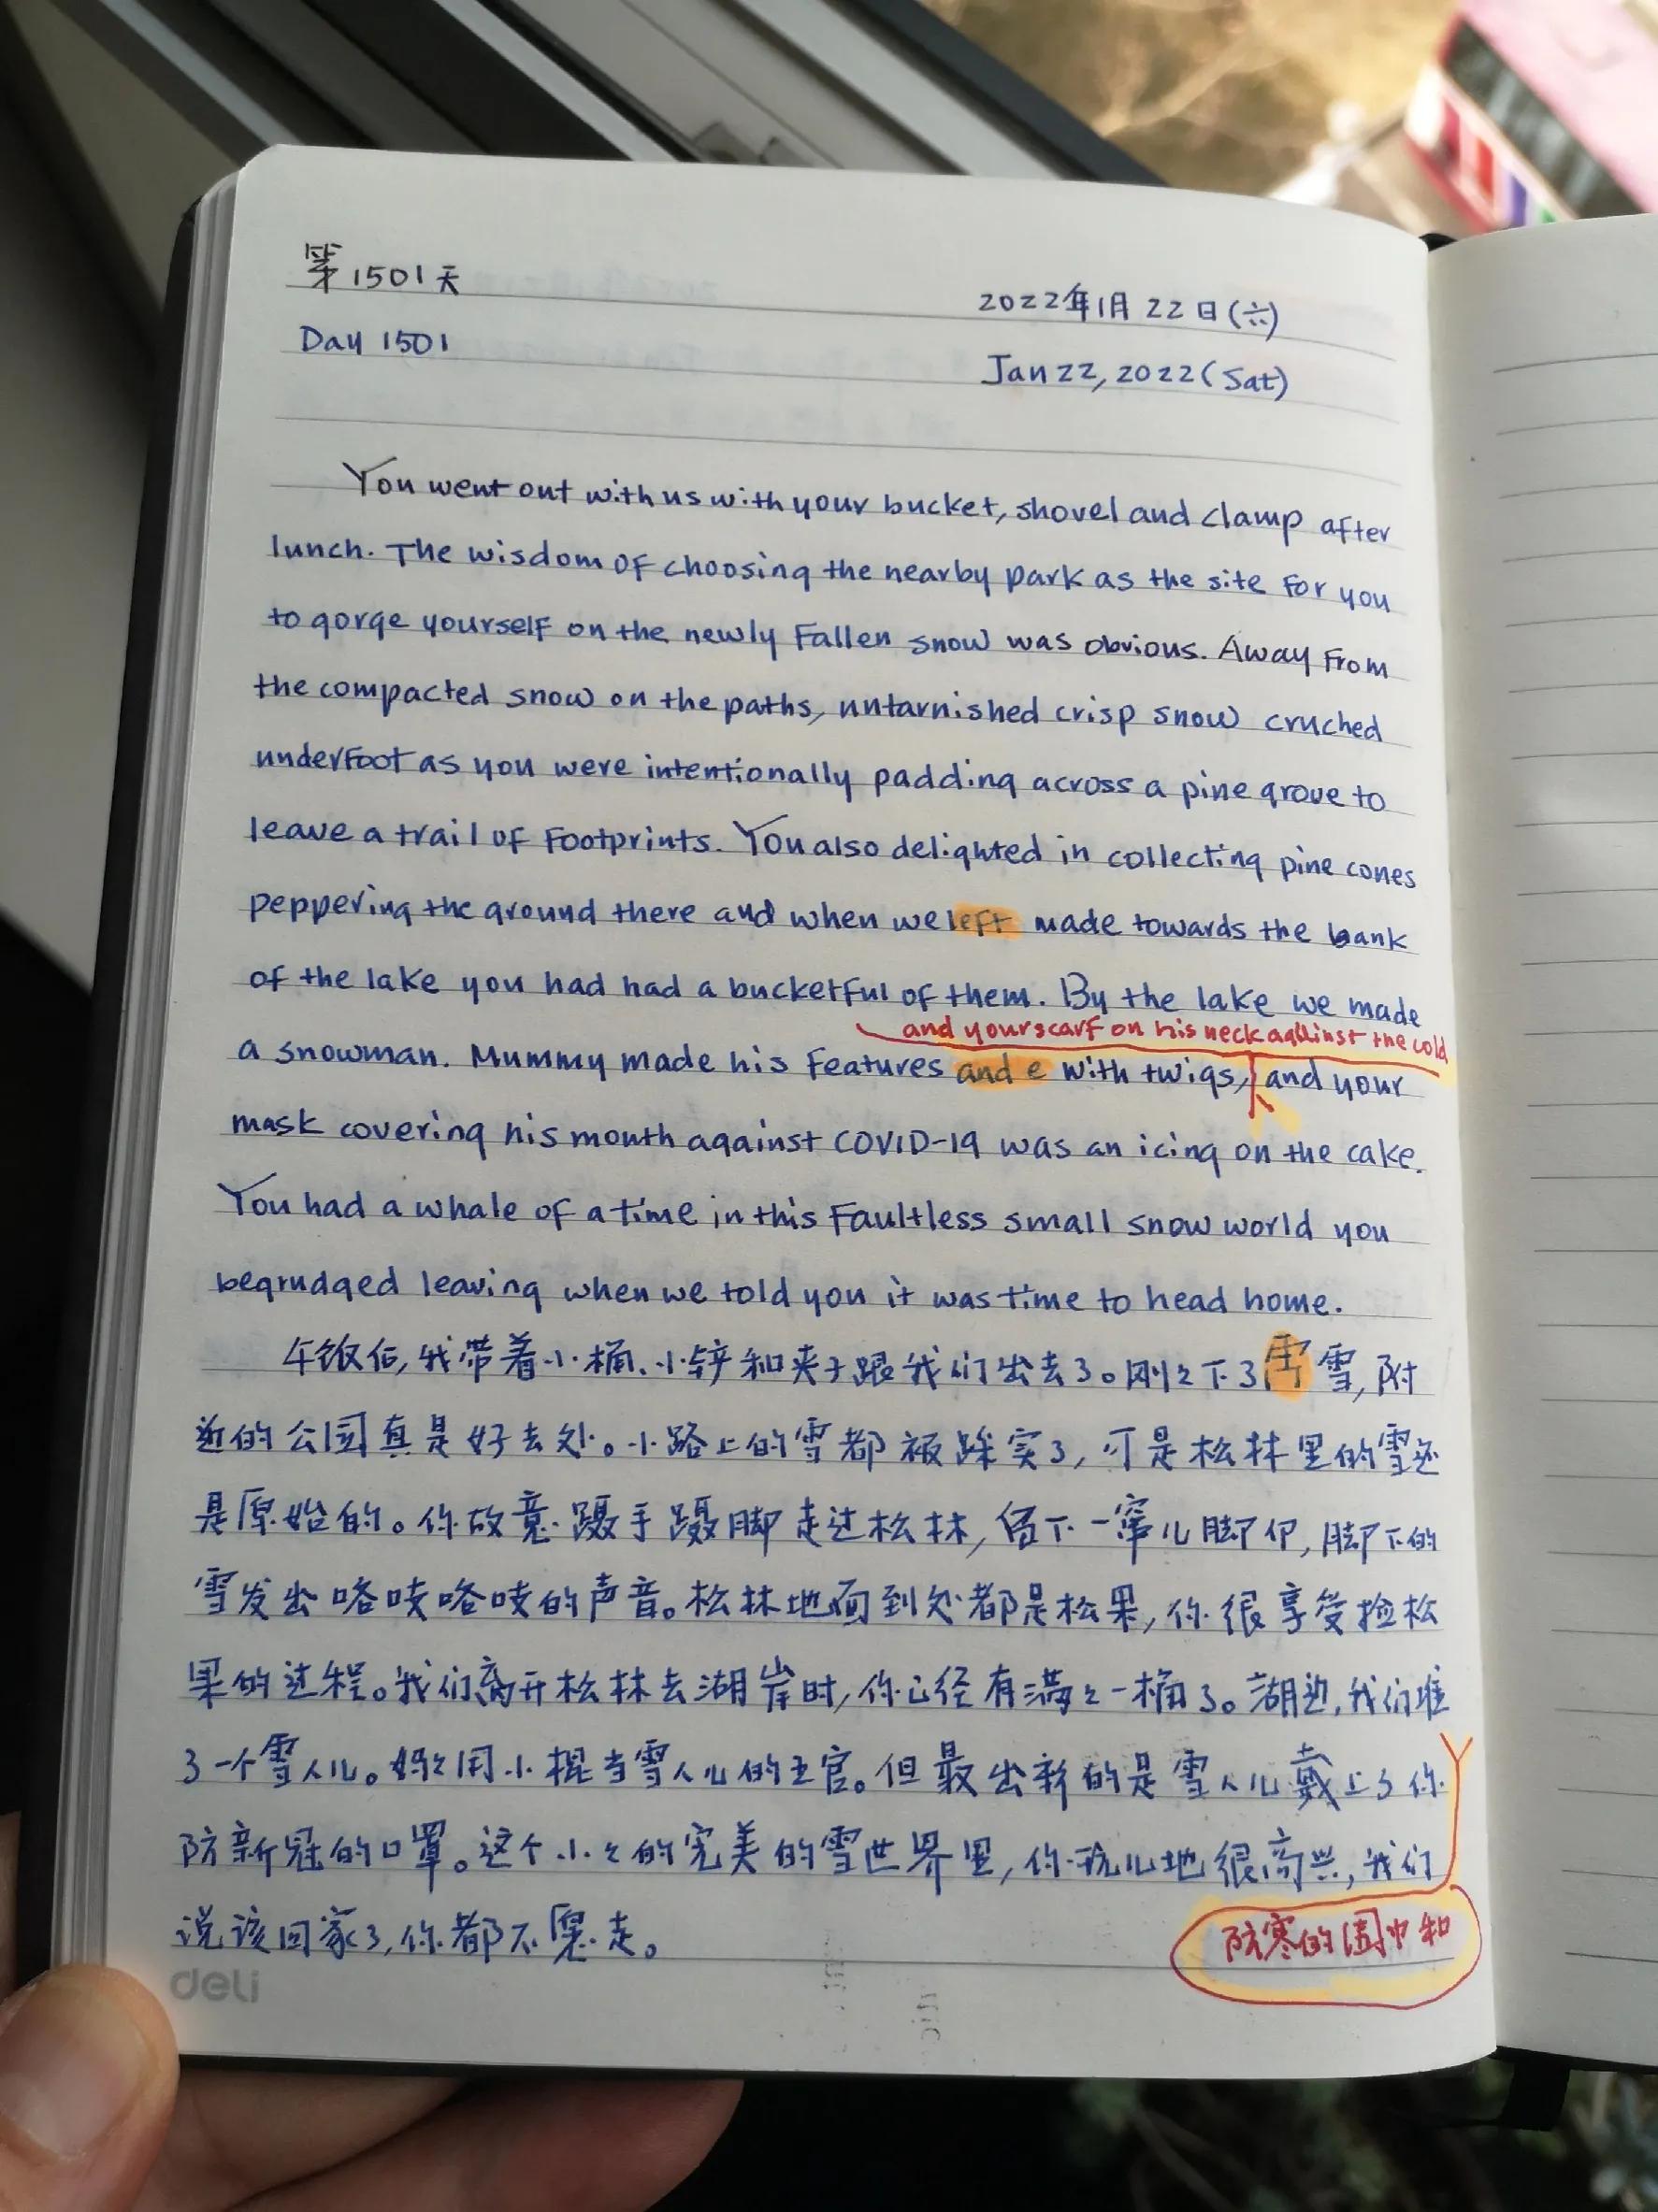 第1501天
2022年1月22日(六)
Day 1501
Jan 22, 2022 (Sat)
You went out with us with your bucket, shovel and clamp after
lunch. The wisdom of choosing the nearby park as the site for you
to gorge yourself on the newly fallen snow was obvious. Away from
the compacted snow on the paths, untarnished crisp snow cruched
underfoot as you were intentionally padding across a pine grove to
leave a trail of footprints. You also delighted in collecting pine cones
peppering the ground there and when we left made towards the bank
of the lake you had had a bucketful of them. By the lake we made
and your scarf on his neck against the cold
a snowman. Mummy made his features and e with twigs, and your
mask covering his mouth against COVID-19 was an icing on the cake.
You had a whale of a time in this faultless small snow world you
begrudged leaving when we told you it was time to head home.
午饭后,我带着小桶、小铲和夹子跟我们出去了。刚々下了雪,附
近的公园真是好去处。小路上的雪都被踩实了,可是松林里的雪还
是原始的。你故意蹑手蹑脚走过松林,留下一窜儿脚印,脚下的
雪发出咯吱咯吱的声音。松林地面到处都是松果,你很享受捡松
果的过程。我们离开松林去湖岸时,你已经有满々一桶了。湖边,我们堆
了一个雪人儿。妈々用小棍当雪人儿的五官。但最出新的是雪人儿戴上了你
防新冠的口罩。这个小々的完美的雪世界里,你玩儿地很高兴,我们
说该回家了,你都不愿走。
防寒的围巾和
deli